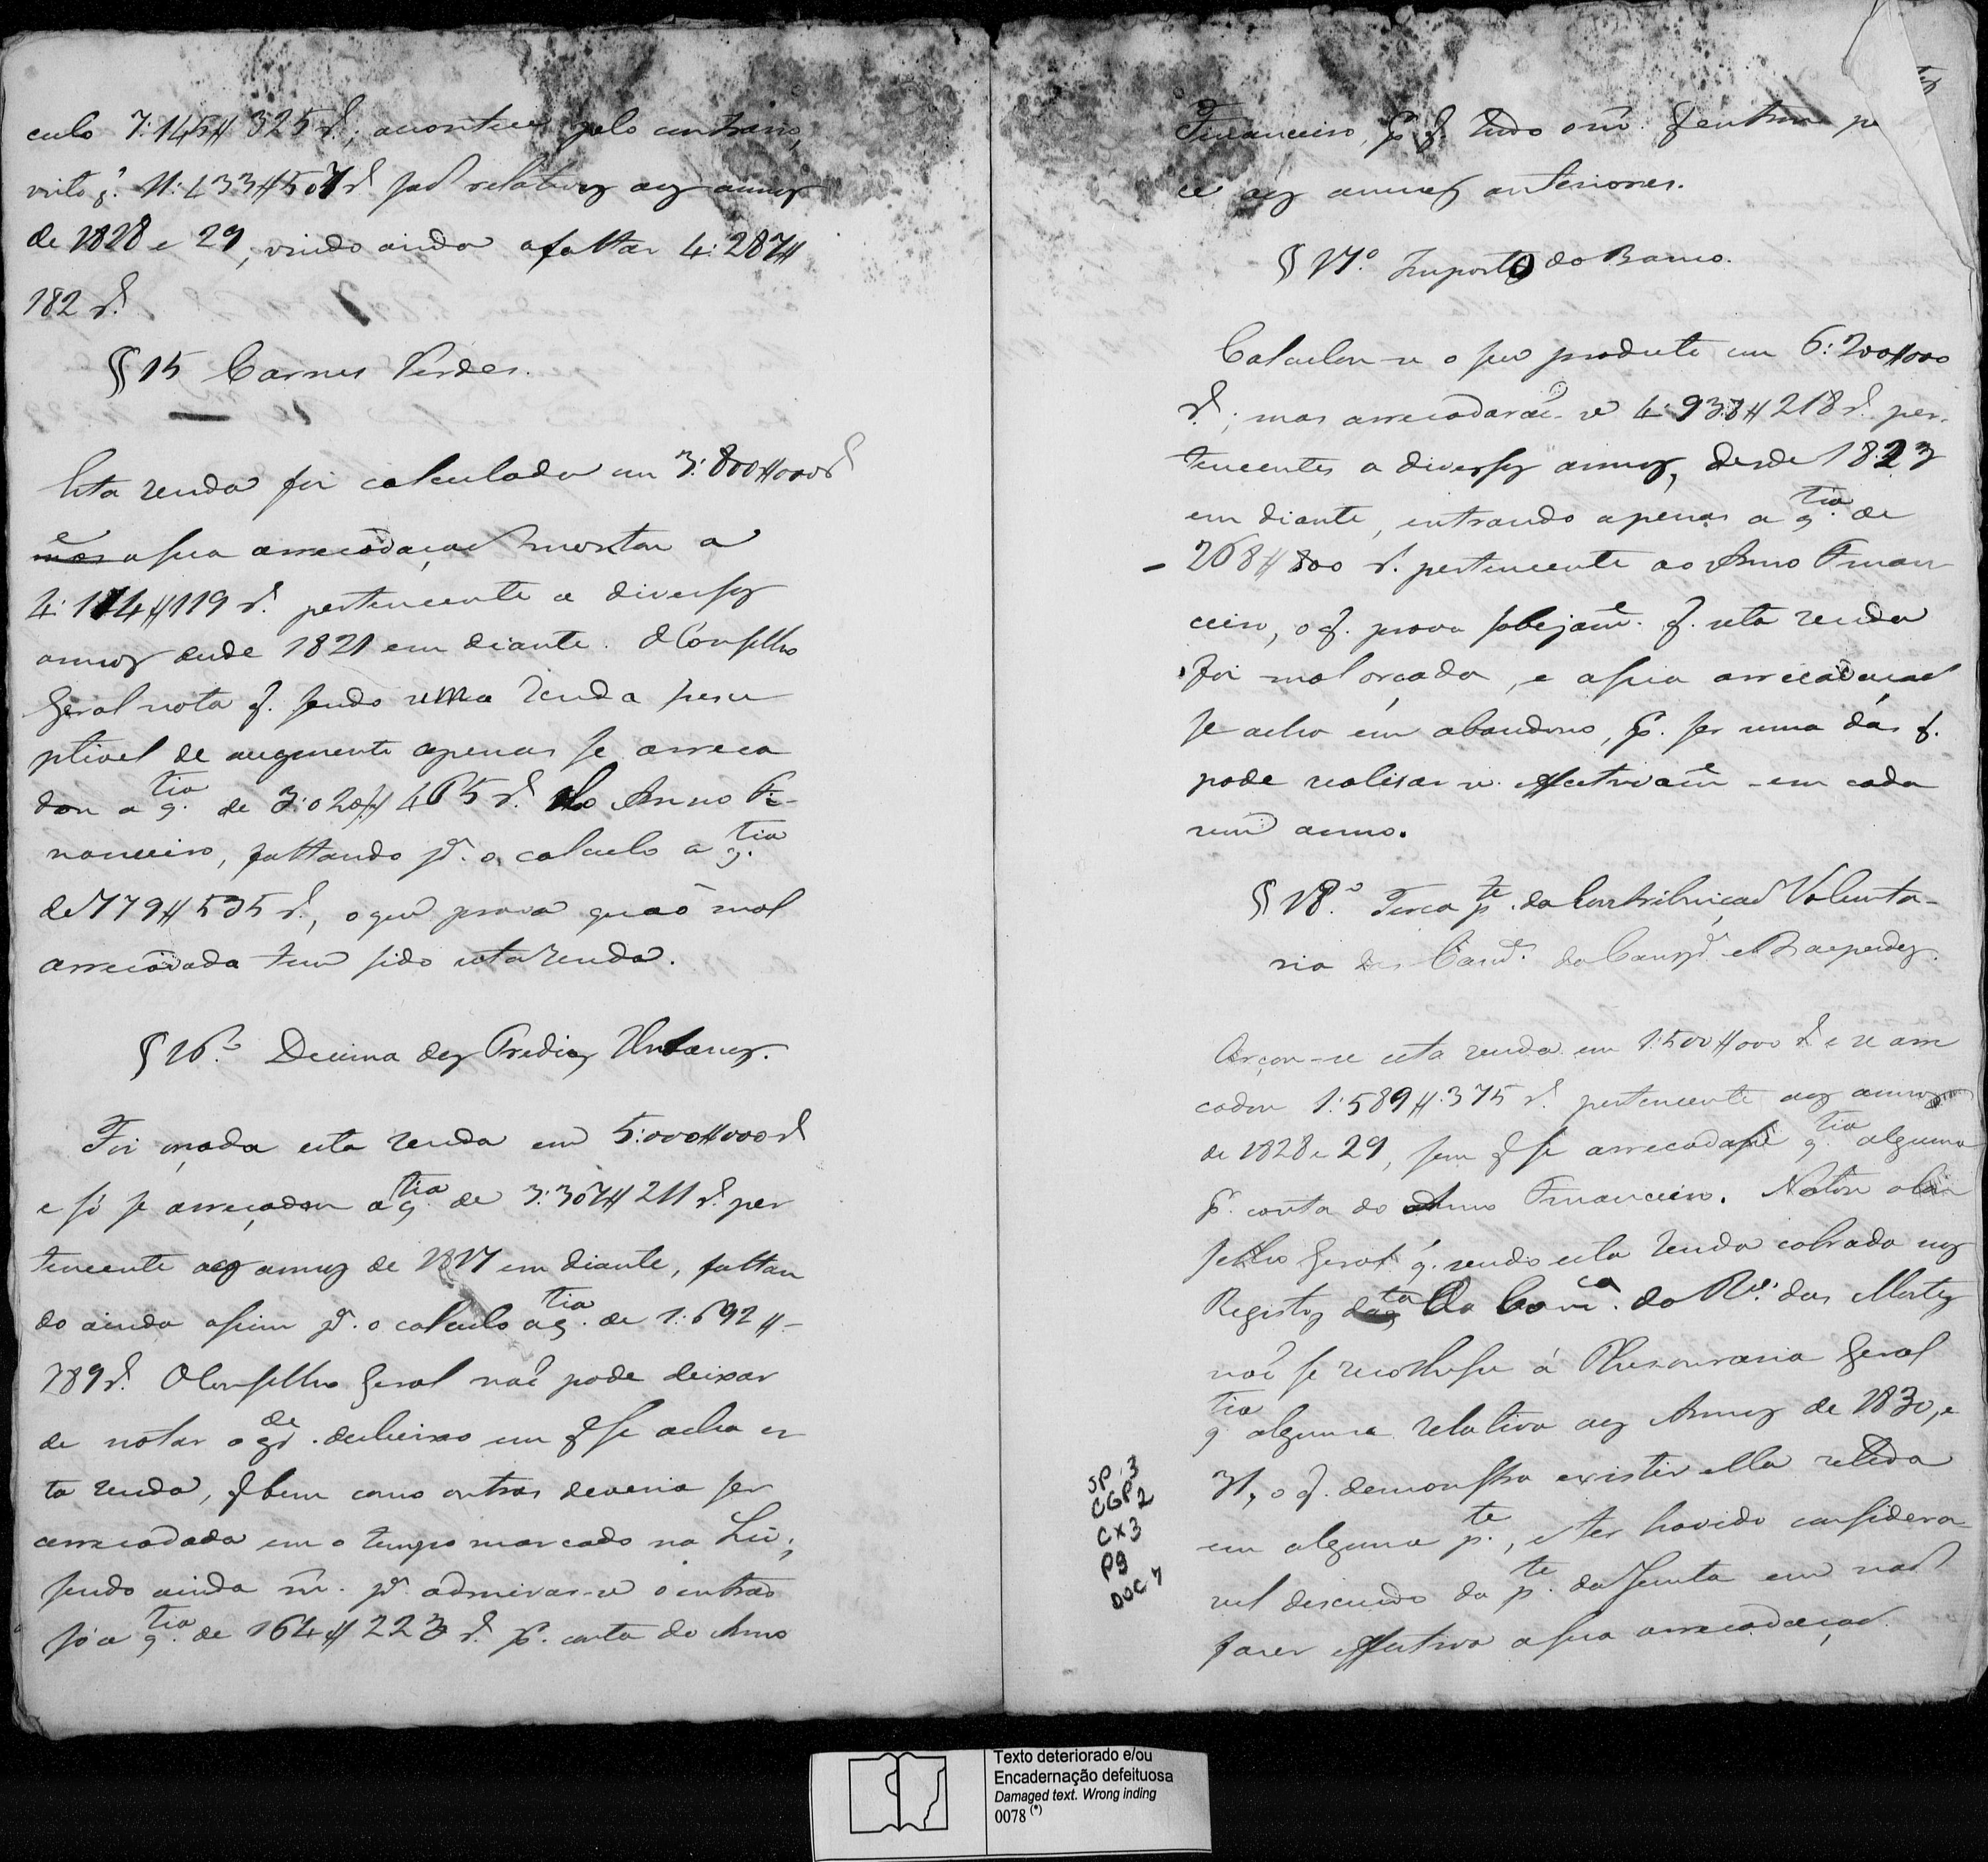 culo 7:145$325 rs.; acontece pelo contrario,
visto q. 11:433$507 rs são relativos aos annos
de 1828 e 29, vindo ainda a faltar 4:287$
182 rs.
§ 15 Carnes Verdes.
Esta renda foi calculada em 3:800$000 rs
e a sua arrecadação montou a
4:174$119 rs. pertencente a diversos
annos desde 1821 em diante. O Conselho
Geral nota q. sendo uma renda susce
ptivel de augmento apenas se arreca
dou a q.tia de 3:020$465 rs. do Anno Fi-
nanceiro, faltando p.a o calculo a q.tia
de 779$535 rs., o que prova quaõ mal
arrecadada tem sido esta renda.
§ 16.o Decima dos Predios Urbanos.
Foi orçada esta renda em 5:000$000 rs
e só se arrecadou a q.tia de 3:307$211 rs. per
tencente aos annos de 1817 em diante, faltan
do ainda assim p.a o calculo a q.tia de 1:692$-
789 rs. O Conselho Geral naõ pode deixar
de notar o g.de desleixo em q. se acha es
ta renda, q. bem como outras deveria ser
arrecadada em o tempo marcado na Lei;
sendo ainda m. p.a admirar-se o entrar
só a q.tia de 164$223 rs. p. conta do Anno
Financeiro, p. q. tudo o m. q. entrou pe
ce aos annos anteriores.
§ 17.o Imposto do Banco.
Calculou-se o seu producto em 6:200$000
rs.; mas arrecadaraõ-se 4:938$218 rs. per-
tencentes a diversos annos, desde 1823
em diante, entrando apenas a q.tia de
268$800 rs. pertencente ao Anno Finan-
ceiro, o q. prova sobejam.e q. esta renda
foi mal orçada, e a sua arrecadaçaõ
se acha em abandono, p. ser uma das q.
pode realisar-se effectivam.e em cada
um anno.
§ 18.o Terça p.te da Contribuiçaõ Volunta-
ria das Cam.s da Camp.a e Baependy.
Orçou-se esta renda em 1:500$000 rs e se arre
cadou 1:589$375 rs. pertencente aos annos
de 1828 e 29, sem q. se arrecadasse q.tia alguma
p. conta do Anno Financeiro. Notou o Con
selho Geral q. sendo esta renda cobrada nos
Registos da Com.ca do R.o das Mortes
naõ se recolhesse á Thesouraria Geral
q.tia alguma relativa aos Annos de 1830, e
31, o q. demonstra existir ella retida
em alguma p.te, e ter havido considera
vel descuido da p.te da Junta em naõ
fazer effectiva a sua arrecadaçaõ.
SP 3
CGP 2
CX 3
P9
DOC 7
Texto deteriorado e/ou
Encadernação defeituosa
Damaged text. Wrong inding
0078 (*)